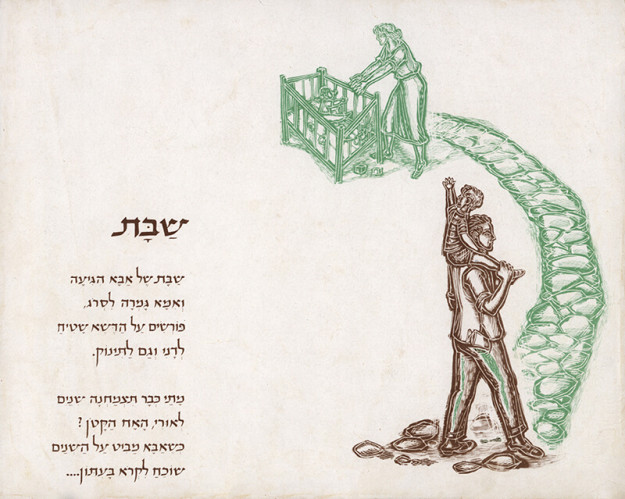 שַׁבָּת
שַׁבָּת שֶׁל אַבָּא הִגִּיעָה
וְאִמָּא גָּמְרָה לִסְרֹג,
פּוֹרְשִׂים עַל הַדֶּשֶׁא שָׁטִיחַ
לְדָנִי וְגַם לַתִּינוֹק.
מָתַי כְּבָר תִּצְמַחְנָה שִׁנַּיִם
לְאוּרִי, הָאָח הַקָּטָן?
כְּשֶׁאַבָּא מַבִּיט עַל הַשְּׁנַיִם
שׁוֹכֵחַ לִקְרֹא בָּעִתּוֹן....